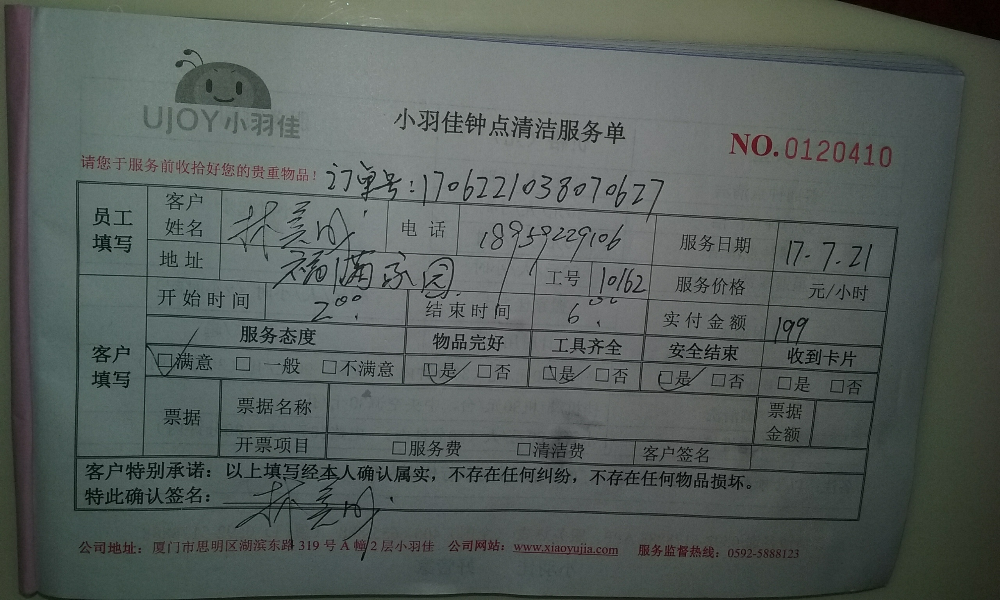 UJOY小羽佳
小羽佳钟点清洁服务单
NO.0120410
请您于服务前收拾好您的贵重物品！ 订单号:1706221038070627
员工填写 客户姓名 林 电话 18959229106 服务日期 17.7.21
地址 福满家园 工号 10162 服务价格 元/小时
开始时间 2:00 结束时间 6:00 实付金额 199
客户填写 服务态度 物品完好 工具齐全 安全结束 收到卡片
☑满意 □一般 □不满意 ☑是 □否 ☑是 □否 ☑是 □否 □是 □否
票据 票据名称 票据金额
开票项目 □服务费 □清洁费 客户签名
客户特别承诺：以上填写经本人确认属实，不存在任何纠纷，不存在任何物品损坏。
特此确认签名： 林
公司地址：厦门市思明区湖滨东路319号A幢2层小羽佳 公司网站：www.xiaoyujia.com 服务监督热线：0592-5888123